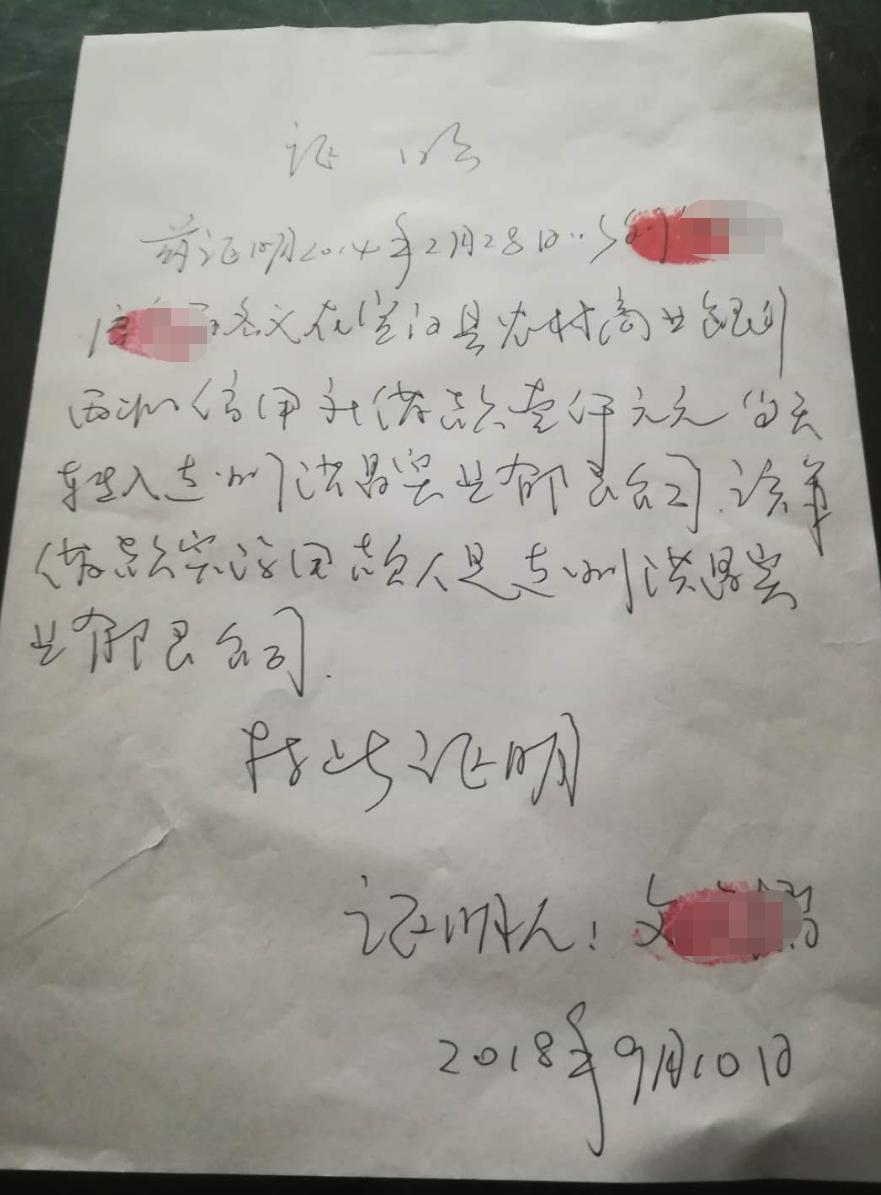 证明
兹证明2014年2月28日
名义在宣汉县农村商业银行
西北信用社借款壹仟万元当天
转入达州洪昌实业有限公司.该笔
借款实际用款人是达州洪昌实
业有限公司.
特此证明
证明人: 文
2018年9月10日